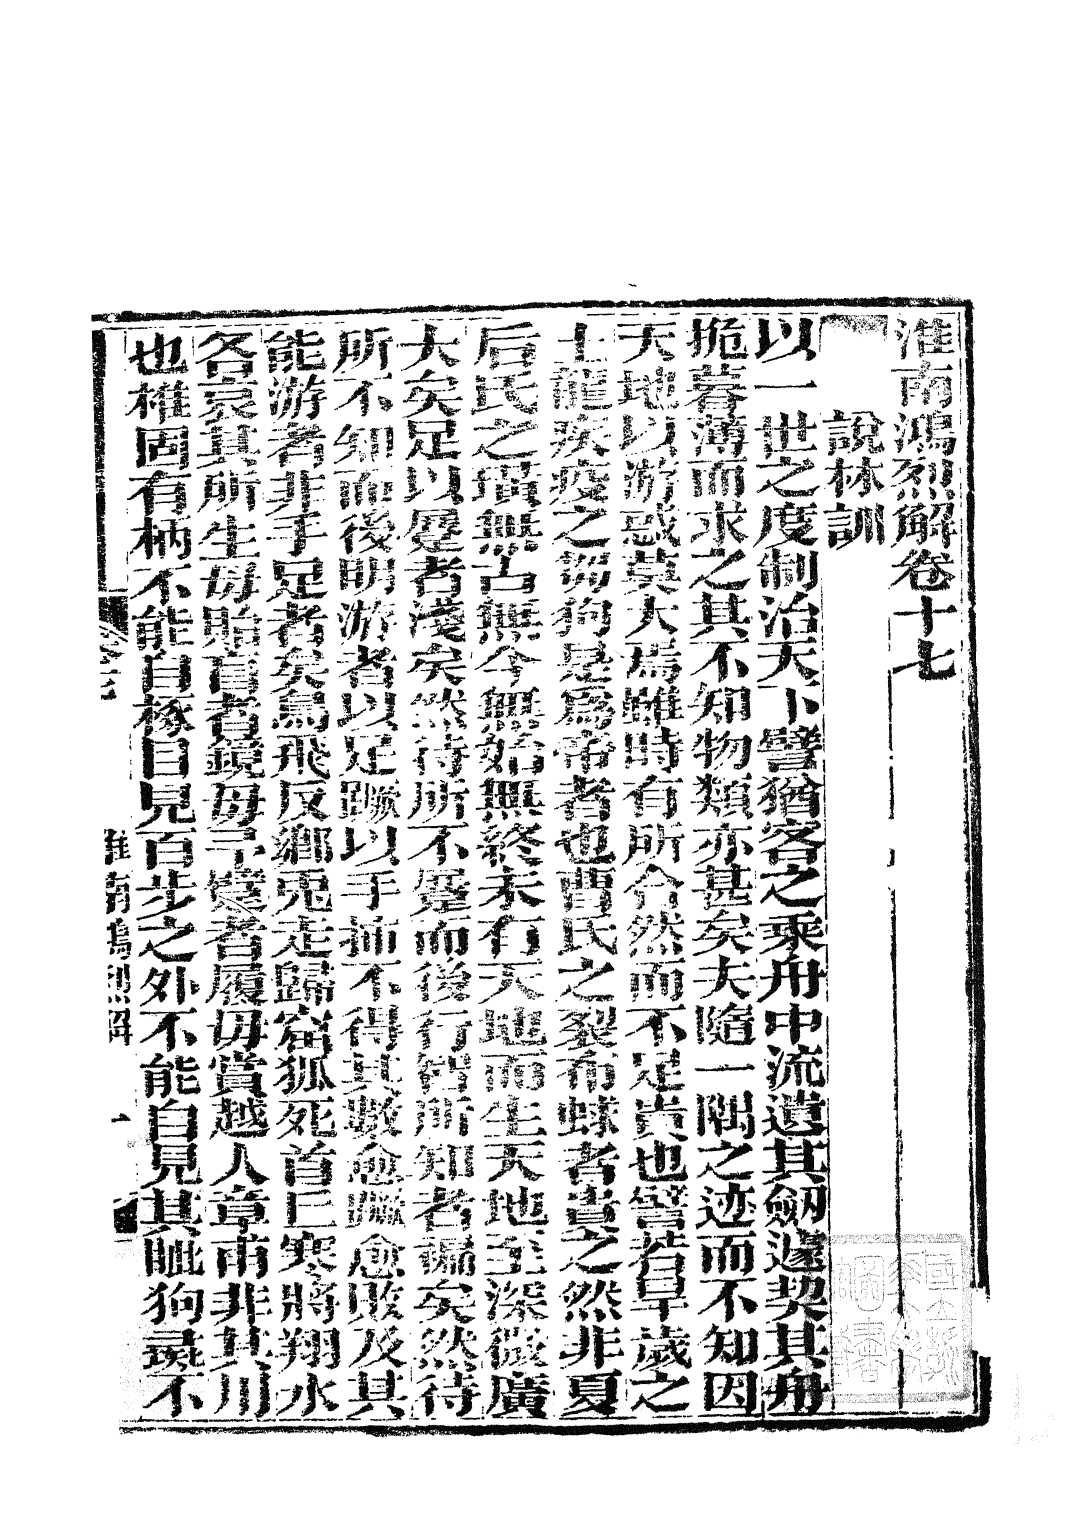 淮南鴻烈解卷十七
說林訓
以一世之度制治天下譬猶客之乘舟中流遺其劒遽契其舟
桅暮薄而求之其不知物類亦甚矣夫隨一隅之迹而不知因
天地以游惑莫大焉雖時有所合然而不足貴也譬若旱歲之
土龍疾疫之芻狗是爲帝者也曹氏之裂布蛷者貴之然非夏
后氏之璜無古無今無始無終未有天地而生天地至深微廣
大矣足以蹍者淺矣然待所不蹍而後行智所知者褊矣然待
所不知而後明游者以足蹶以手𢱢不得其數愈蹶愈敗及其
能游者非手足者矣鳥飛反鄉兎走歸窟狐死首丘寒將翔水
各哀其所生毋貽盲者鏡毋予躄者履毋賞越人章甫非其用
也椎固有柄不能自椓目見百步之外不能自見其眦狗彘不
淮南鴻烈解
一